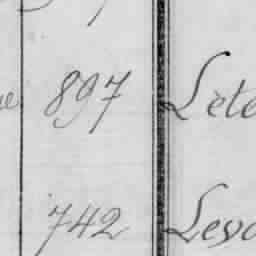 897 Lete
742 Leva